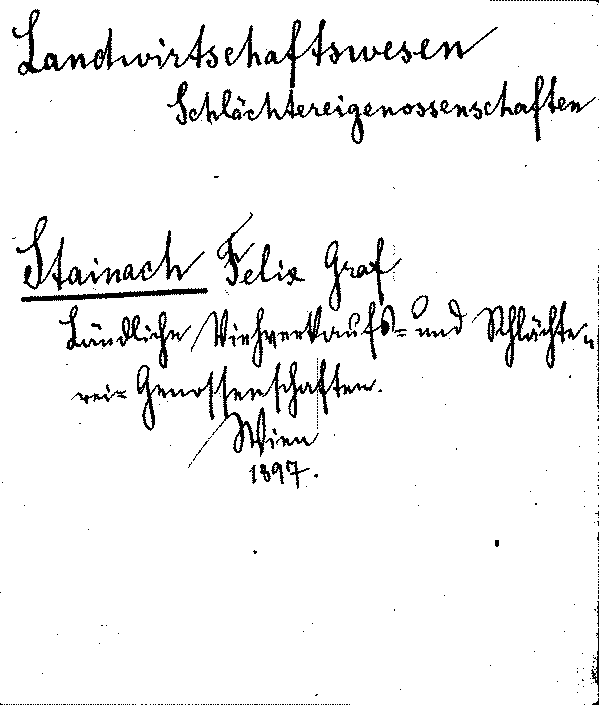 Landwirtschaftswesen
Schlächtereigenossenschaften
Stainach Felix Graf
Ländliche Viehverkaufs- und Schlächte-
rei- Genossenschaften.
Wien
1897.